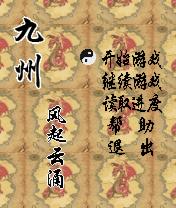 九州
风起云涌
开始游戏
继续游戏
读取进度
帮助
退出